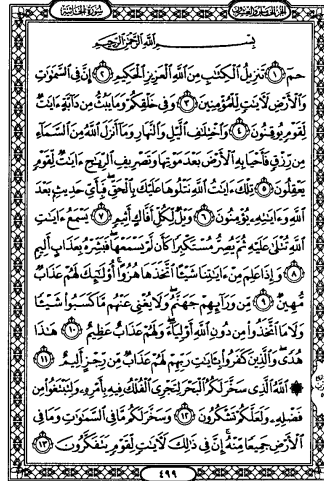 الجزء الخامس والعشرون سورة الجاثية
بِسْمِ اللَّهِ الرَّحْمَٰنِ الرَّحِيمِ
حمٓ ﴿١﴾ تَنزِيلُ ٱلْكِتَـٰبِ مِنَ ٱللَّهِ ٱلْعَزِيزِ ٱلْحَكِيمِ ﴿٢﴾ إِنَّ فِى ٱلسَّمَـٰوَٰتِ
وَٱلْأَرْضِ لَـَٔايَـٰتٍ لِّلْمُؤْمِنِينَ ﴿٣﴾ وَفِى خَلْقِكُمْ وَمَا يَبُثُّ مِن دَآبَّةٍ ءَايَـٰتٌ
لِّقَوْمٍ يُوقِنُونَ ﴿٤﴾ وَٱخْتِلَـٰفِ ٱلَّيْلِ وَٱلنَّهَارِ وَمَآ أَنزَلَ ٱللَّهُ مِنَ ٱلسَّمَآءِ
مِن رِّزْقٍ فَأَحْيَا بِهِ ٱلْأَرْضَ بَعْدَ مَوْتِهَا وَتَصْرِيفِ ٱلرِّيَـٰحِ ءَايَـٰتٌ لِّقَوْمٍ
يَعْقِلُونَ ﴿٥﴾ تِلْكَ ءَايَـٰتُ ٱللَّهِ نَتْلُوهَا عَلَيْكَ بِٱلْحَقِّ فَبِأَىِّ حَدِيثٍۭ بَعْدَ
ٱللَّهِ وَءَايَـٰتِهِۦ يُؤْمِنُونَ ﴿٦﴾ وَيْلٌ لِّكُلِّ أَفَّاكٍ أَثِيمٍ ﴿٧﴾ يَسْمَعُ ءَايَـٰتِ
ٱللَّهِ تُتْلَىٰ عَلَيْهِ ثُمَّ يُصِرُّ مُسْتَكْبِرًا كَأَن لَّمْ يَسْمَعْهَا فَبَشِّرْهُ بِعَذَابٍ أَلِيمٍ
﴿٨﴾ وَإِذَا عَلِمَ مِنْ ءَايَـٰتِنَا شَيْـًٔا ٱتَّخَذَهَا هُزُوًا أُو۟لَـٰٓئِكَ لَهُمْ عَذَابٌ
مُّهِينٌ ﴿٩﴾ مِّن وَرَآئِهِمْ جَهَنَّمُ وَلَا يُغْنِى عَنْهُم مَّا كَسَبُوا۟ شَيْـًٔا
وَلَا مَا ٱتَّخَذُوا۟ مِن دُونِ ٱللَّهِ أَوْلِيَآءَ وَلَهُمْ عَذَابٌ عَظِيمٌ ﴿١٠﴾ هَـٰذَا
هُدًى وَٱلَّذِينَ كَفَرُوا۟ بِـَٔايَـٰتِ رَبِّهِمْ لَهُمْ عَذَابٌ مِّن رِّجْزٍ أَلِيمٌ ﴿١١﴾
۞ ٱللَّهُ ٱلَّذِى سَخَّرَ لَكُمُ ٱلْبَحْرَ لِتَجْرِىَ ٱلْفُلْكُ فِيهِ بِأَمْرِهِۦ وَلِتَبْتَغُوا۟ مِن
فَضْلِهِۦ وَلَعَلَّكُمْ تَشْكُرُونَ ﴿١٢﴾ وَسَخَّرَ لَكُم مَّا فِى ٱلسَّمَـٰوَٰتِ وَمَا فِى
ٱلْأَرْضِ جَمِيعًا مِّنْهُ إِنَّ فِى ذَٰلِكَ لَـَٔايَـٰتٍ لِّقَوْمٍ يَتَفَكَّرُونَ ﴿١٣﴾
٤٩٩